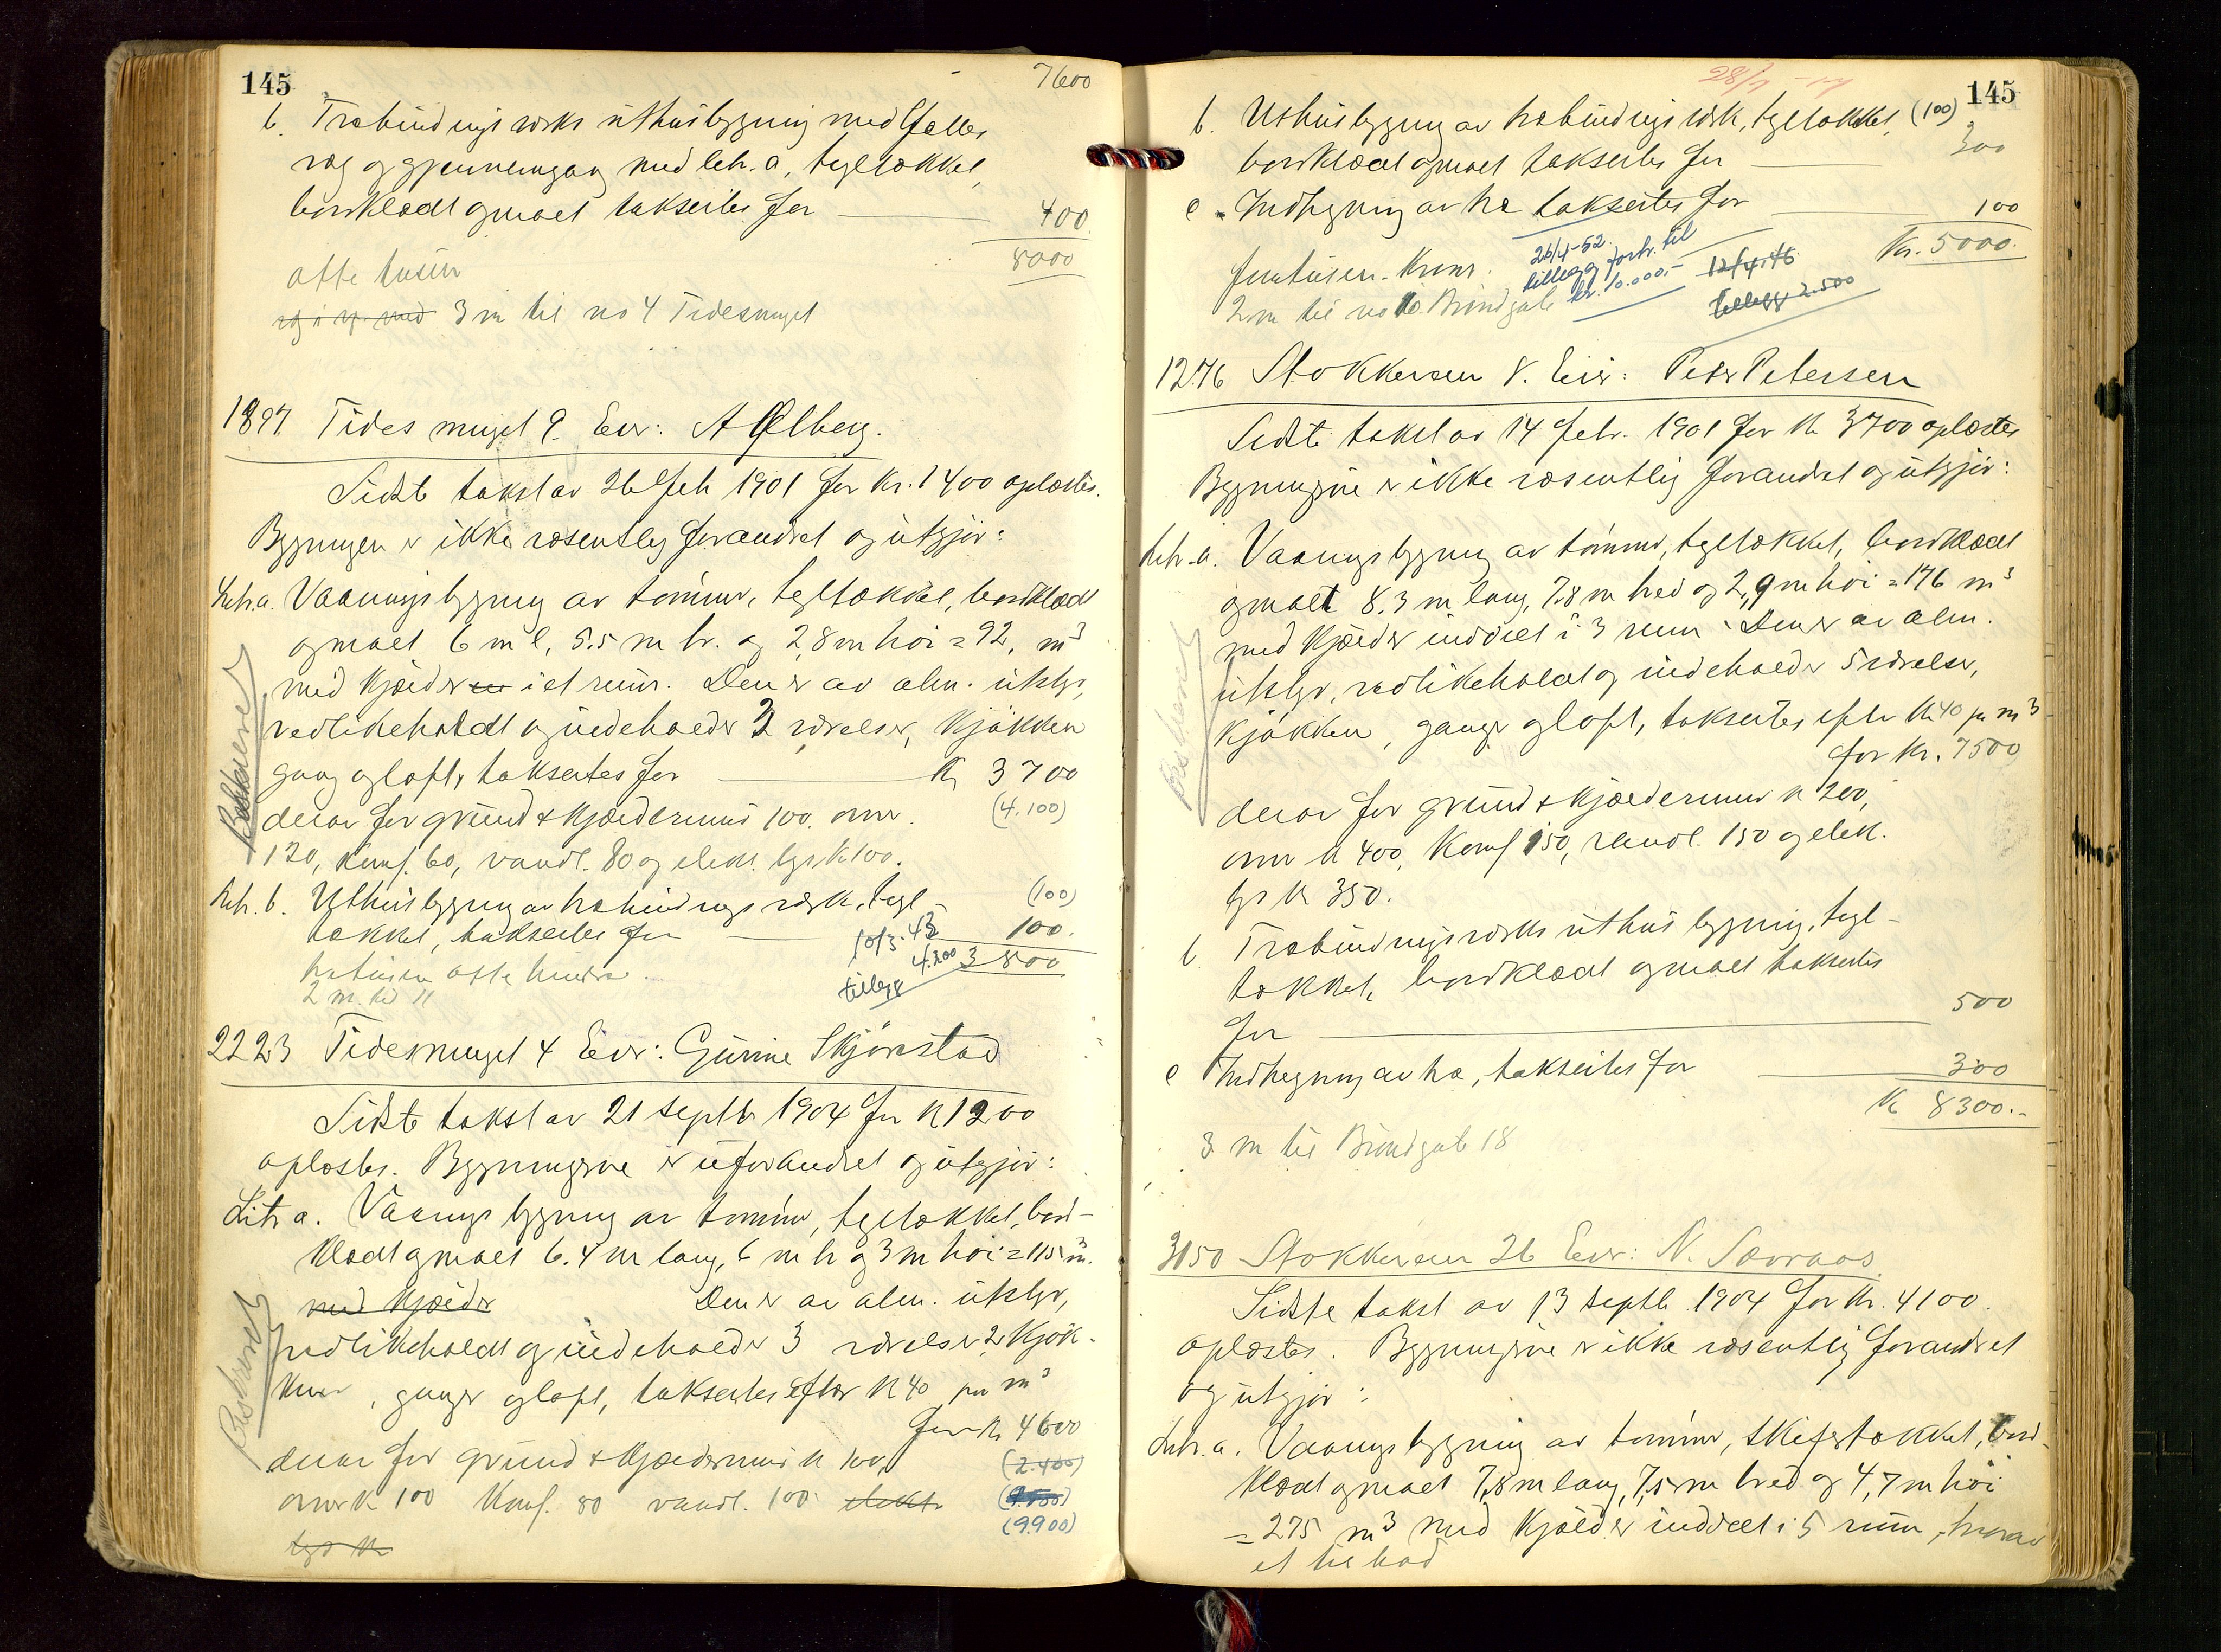 145
7600
b. Træbindings verks uthusbygning med fælles
væg og gjennemgang med litr. a, tegltækket,
bordklædt og malt takseres for 400
8000
otte tusen
3 m til no 4 Tidesmuget
1897 Tidesmuget 9. Eier: A Ølberg.
Sidste takst av 26 feb 1901 for Kr. 1400 oplæstes.
Bygningen er ikke væsentlig forandret og utgjør:
Litr. a. Vaaningsbygning av tømmer, tegltækket, bordklædt
og malt 6 m l, 5.5 m br. og 2,8 m høi = 92, m³
med kjælder i et rum. Den er av alm. utstyr,
vedlikeholdt og indeholder 2 værelser, kjøkken
gang og loft, takseres for K 3700
derav for grund & kjældermur 100. ovner. (4.100)
120, Komf. 60, vandl. 80 og elekt. lys K 100.
Litr. b. Uthusbygning av træbindings verk, tegl- (100)
tækket, takseres for 100.
10/3.43
tillegg 4.200
3800
tretusen otte hundre.
2 m. til 11
2223 Tidesmuget 4 Eier: Gurine Skjørestad
Sidste takst av 21 septbr 1904 for K 1200
oplæstes. Bygningerne er uforandret og utgjør:
Litr a. Vaanings bygning av tømmer, tegltækket, bord-
klædt og malt 6.4 m lang, 6 m br og 3 m høi = 115 m³.
med kjælder Den er av alm. utstyr,
vedlikeholdt og indeholder 3 værelser 2 kjøk-
kener, ganger og loft, takseres efter K 40 per m³
for K 4600
derav for grund & kjældermur K 100, (2.400)
ovner K 100 Komf. 80 vandl. 100 elekt. (9.900)
lys K
Bokført
28/
145
b. Uthusbygning av træbindings verk, tegltækket, (100)
bordklædt og malt takseres for 300
c. Indhegning av træ takseres for 100
Kr. 5000.
femtusen Kroner.
26/4-52.
tillegg forh. til
kr. 10.000.-
12/4.46
tillegg 2.500
2 m til no 10. Brundgate
1276 Stokkeveien 8. Eier: Peder Petersen
Sidste takst av 14 febr. 1901 for K 3700 oplæstes
Bygningerne er ikke væsentlig forandret og utgjør:
Litr. a. Vaaningsbygning av tømmer, tegltækket, bordklædt
og malt 8.3 m lang, 7.8 m bred og 2,9 m høi = 176 m³
med kjælder inddelt i 3 rum. Den er av alm.
utstyr, vedlikeholdt og indeholder 5 værelser,
kjøkken, ganger og loft, takseres efter K 40 per m³
for Kr. 7500
derav for grund & kjældermur K 200,
ovner K 400, Komf 150, vandl. 150 og elek.
lys K 350.
b. Træbindingsverks uthus bygning, tegl-
tækket, bordklædt og malt takseres
for 500
c Indhegning av træ, takseres for 300
K 8300.-
3 m til Brundgate 18
3150 Stokkeveien 26 Eier: N. Sævraas
Sidste takst av 13 septb. 1904 for Kr. 4100.
oplæstes. Bygningerne er ikke væsentlig forandret
og utgjør:
Litr. a. Vaanings bygning av tømmer, skifertækket, bord-
klædt og malt 7,8 m lang, 7,5 m bred og 4,7 m høi
= 275 m³ med kjælder inddelt i 5 rum, hvorav
et til bad